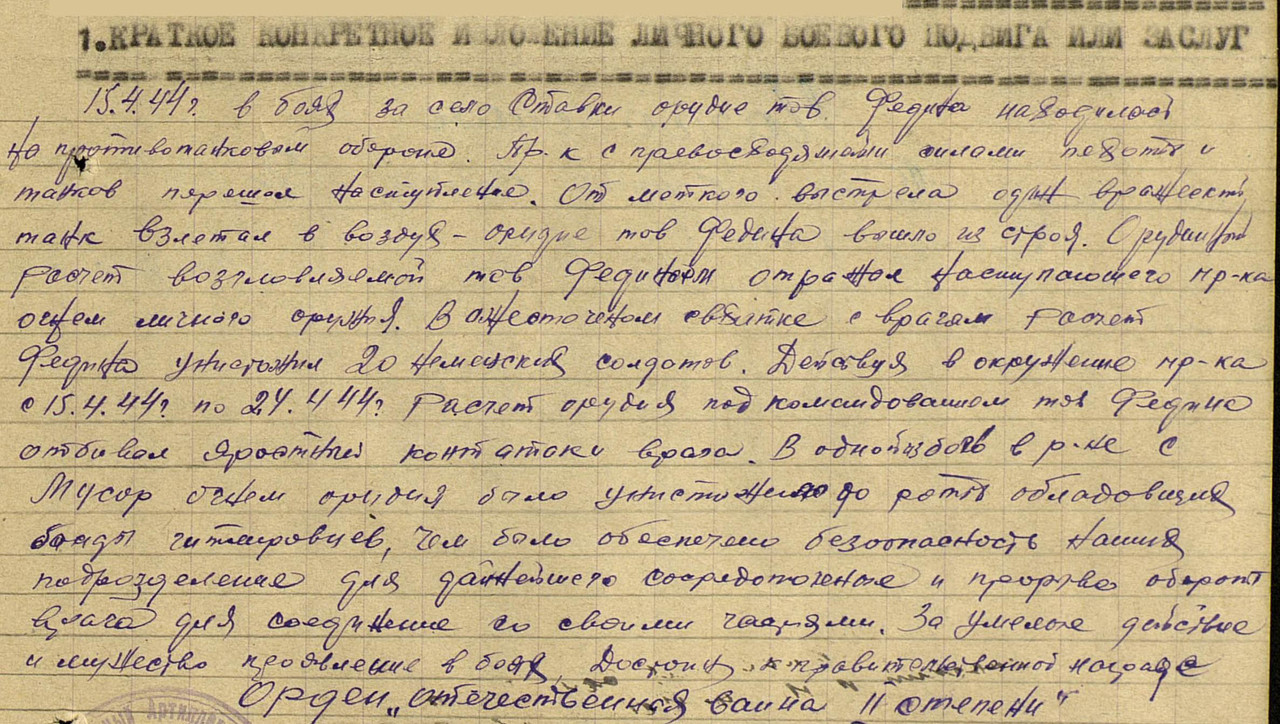 1. КРАТКОЕ КОНКРЕТНОЕ ИЗЛОЖЕНИЕ ЛИЧНОГО БОЕВОГО ПОДВИГА ИЛИ ЗАСЛУГ
15.4.44г. в боях за село Ставки орудие тов. Федина находилось
на противотанковой обороне. Пр-к с превосходящеми силами пехоты и
танков перешол наступление. От меткого выстрела один вражеский
танк взлетал в воздух – орудие тов Федина вышло из строя. Орудийный
расчет возглавляемой тов Фединым отражал наступающего пр-ка
огнем личного оружия. В ожесточеном схватке с врагам расчет
Федина унистожил 20 немецких солдатов. Действуя в окружение пр-ка
с 15.4.44г. по 24.4.44г. расчет орудия под командованием тов Федина
отбивал яростный контатаки врага. В одной из боев в р-не с
Мусор огнем орудия было унистожено до роты
банды гитлеровцев, чем было обеспечено безопасность наших
подрозделение для дальнейшего сосредоточение и прорыва обороны
врага для соединение со своими частями. За умелое действие
и мужество проявление в боях, Достоин к правительственной награде
Орден „отечественная война II степени"